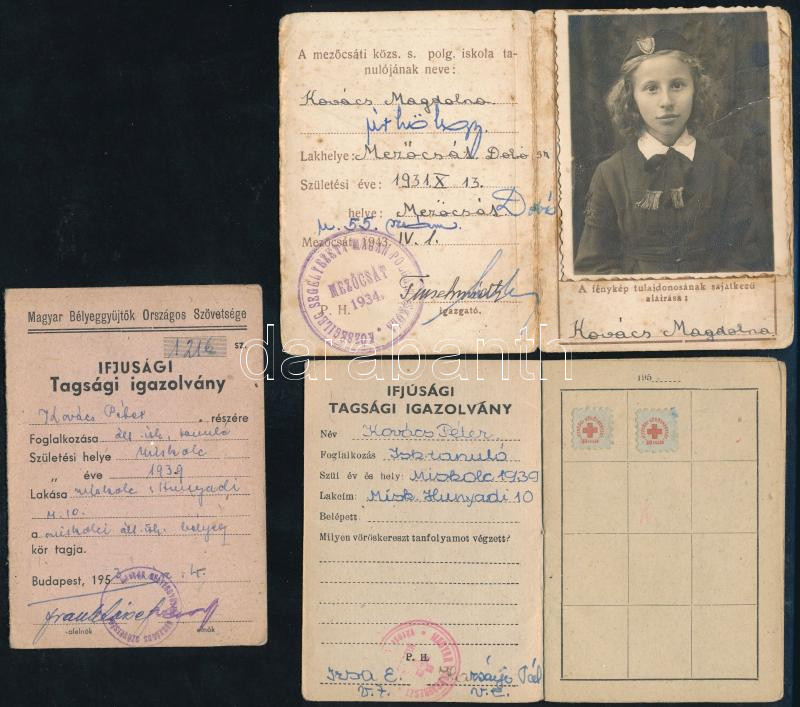 A mezőcsáti közs. s. polg. iskola ta-
nulójának neve:
Kovács Magdolna
Lakhelye: Mezőcsát
Születési éve: 1931. X. 13.
helye: Mezőcsát
u. 55. szám.
Mezőcsát, 1943. IV. 1.
MEZŐCSÁT
1934.
P. H.
igazgató.
A fénykép tulajdonosának sajátkezű
aláírása:
Kovács Magdolna
Magyar Bélyeggyüjtők Országos Szövetsége
1216 sz.
IFJUSÁGI
Tagsági igazolvány
Kovács Péter részére
Foglalkozása ált. isk. tanuló
Születési helye Miskolc
„ éve 1939
Lakása Miskolc, Hunyadi
u. 10.
a miskolci ált. isk. bélyeg
kör tagja.
Budapest, 195
alelnök elnök
IFJÚSÁGI
TAGSÁGI IGAZOLVÁNY
Név Kovács Péter
Foglalkozás Isk. tanuló
Szül év és hely: Miskolc 1939
Lakcím: Misk. Hunyadi 10
Belépett
Milyen vöröskereszt tanfolyamot végzett?
P. H.
195
darabanth.com